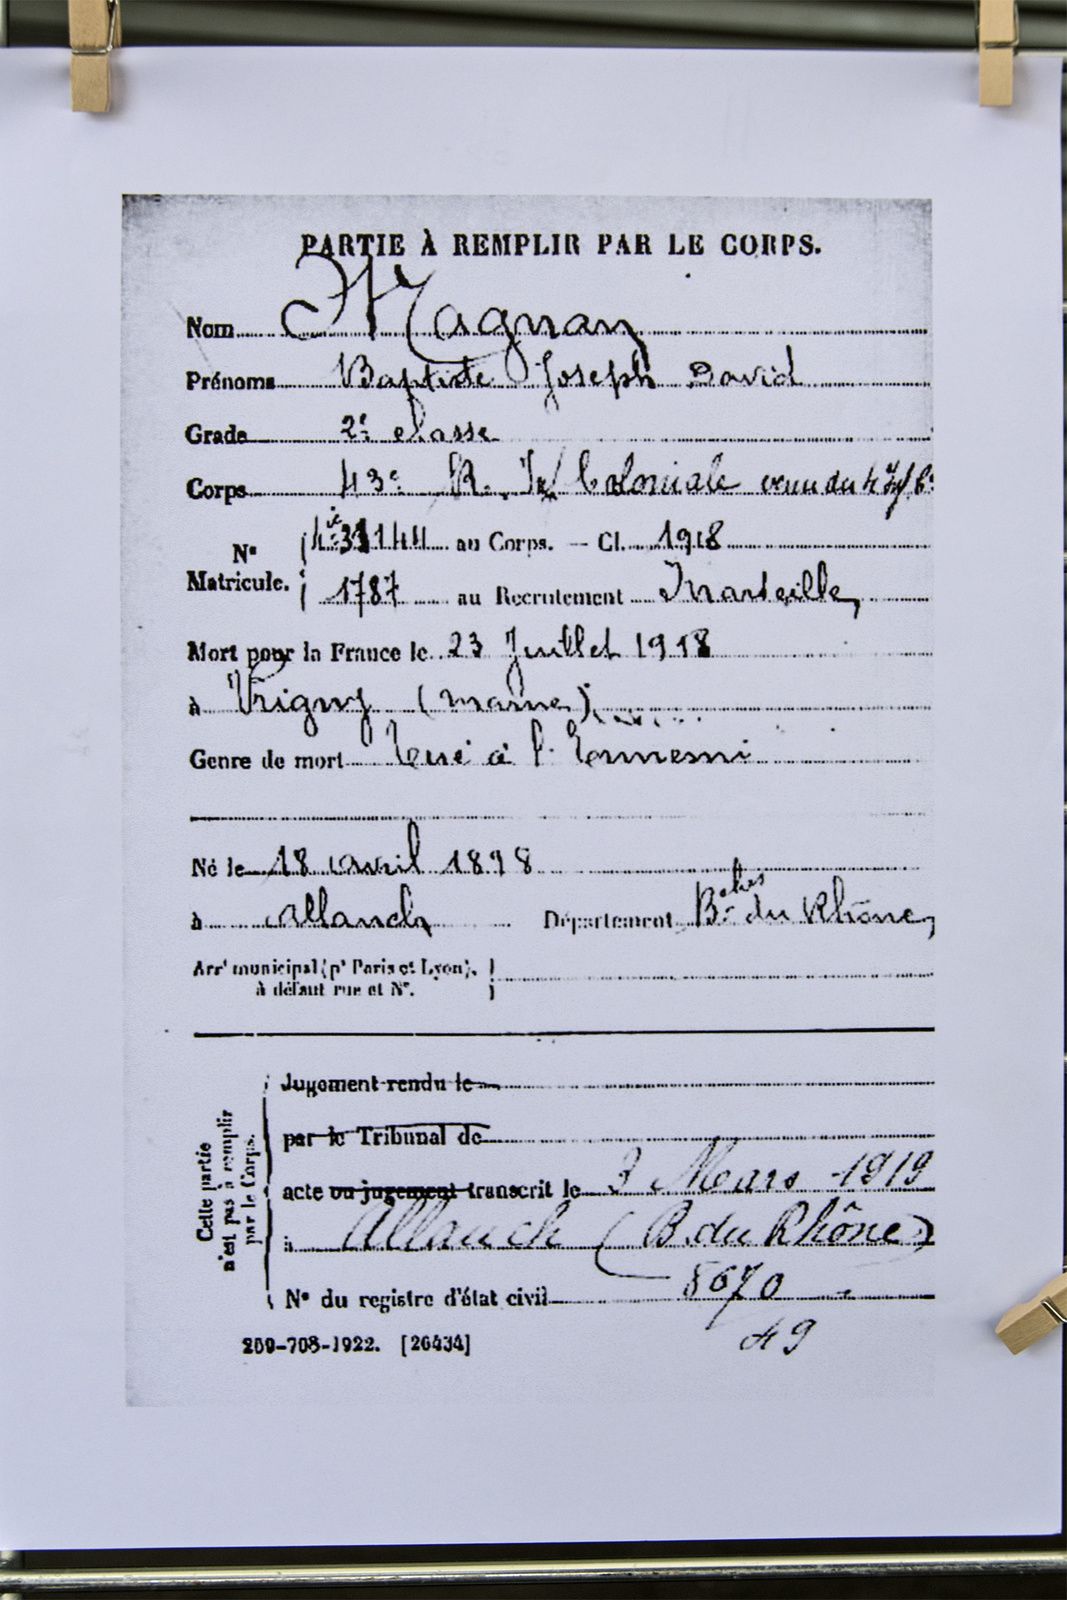 PARTIE À REMPLIR PAR LE CORPS.
Nom Magnan
Prénoms Baptiste Joseph David
Grade 2e classe
Corps 43e R. Inf Coloniale venu du 4e
No Matricule. 33144 au Corps. — Cl. 1918
1787 au Recrutement Marseille
Mort pour la France le 23 Juillet 1918
à Vrigny (Marne)
Genre de mort Tué à l'Ennemi
Né le 18 avril 1898
à Allauch Département B. ches du Rhône
Arrt municipal (pr Paris et Lyon),
à défaut rue et No.
Cette partie n'est pas à remplir par le Corps.
Jugement rendu le
par le Tribunal de
acte ou jugement transcrit le 3 Mars 1919
à Allauch (B. du Rhône)
No du registre d'état civil 5670
49
259-708-1922. [26434]